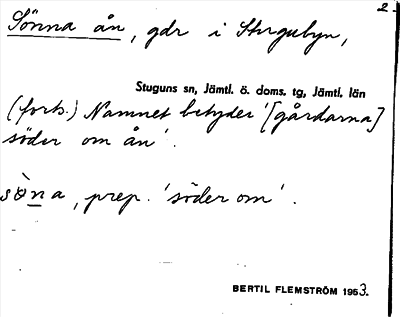 2.
Sönna ån, gdr i Stugubyn,
Stuguns sn, Jämtl. ö. doms. tg, Jämtl. län
(forts.) Namnet betyder '[gårdarna]
söder om ån'.
søna, prep. 'söder om'.
BERTIL FLEMSTRÖM 1953.